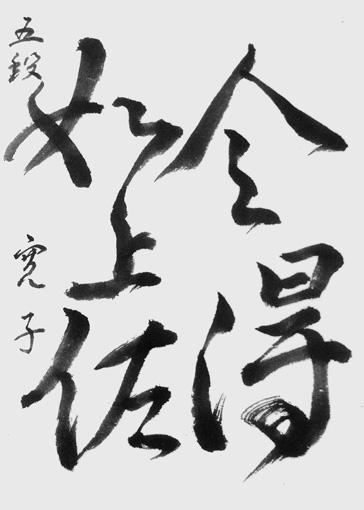 令得
如上佐
五段 寛子